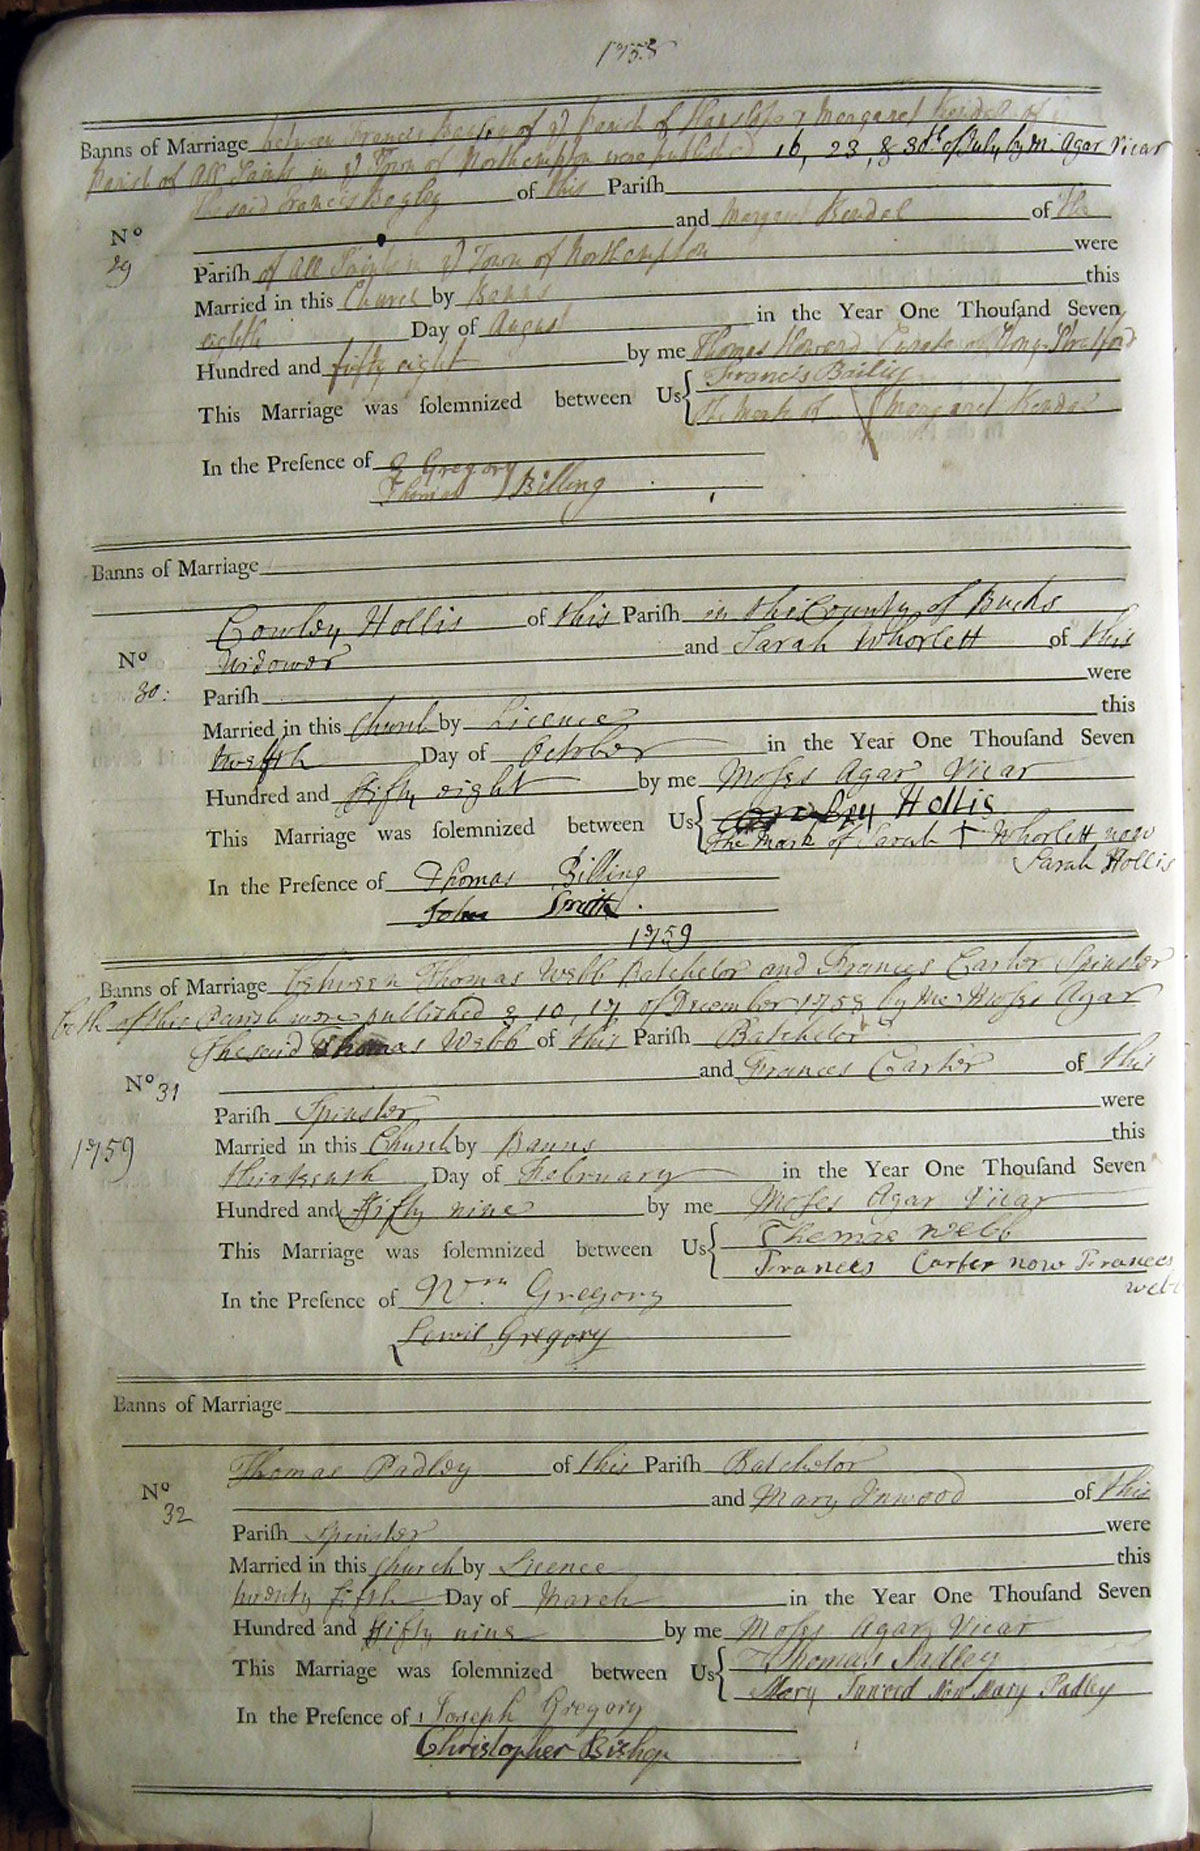 1758
Banns of Marriage between Francis Bagley of ye Parish of Hanslope & Margaret Kendel of
Parish of All Saints in ye Town of Northampton were published 16, 23, & 30th of July by M. Agar Vicar
The said Francis Bagley of this Parish
No
29
and Margaret Kendel of the
Parish of All Saints in ye Town of Northampton were
Married in this Church by Banns this
eighth Day of August in the Year One Thouſand Seven
Hundred and fifty eight by me Thomas Howard Curate of Stony Stratford
This Marriage was ſolemnized between Us Francis Bailiy
The Mark of Margaret Kendel
In the Preſence of J Gregory
Thomas Billing
Banns of Marriage
Cowley Hollis of this Parish in this County of Bucks
No
30:
Widower and Sarah Whorlett of this
Pariſh were
Married in this Church by Licence this
twelfth Day of October in the Year One Thouſand Seven
Hundred and fifty eight by me Moſes Agar Vicar
This Marriage was ſolemnized between Us Cowley Hollis
The Mark of Sarah + Whorlett now
Sarah Hollis
In the Preſence of Thomas Billing
John Smith
1759
Banns of Marriage between Thomas Webb Batchelor and Frances Carter Spinster
both of this Parish were published 3, 10, 17, of December 1758 by me Moſes Agar
The said Thomas Webb of this Pariſh Batchelor
No 31
and Frances Carter of this
Pariſh Spinster were
1759
Married in this Church by Banns this
thirteenth Day of February in the Year One Thouſand Seven
Hundred and fifty nine by me Moſes Agar Vicar
This Marriage was ſolemnized between Us Thomas Webb
Frances Carter now Frances
webb
In the Preſence of Wm. Gregory
Lewis Gregory
Banns of Marriage
Thomas Padley of this Pariſh Batchelor
No
32
and Mary Inwood of this
Pariſh Spinster were
Married in this Church by Licence this
twenty fifth Day of March in the Year One Thouſand Seven
Hundred and fifty nine by me Moſes Agar Vicar
This Marriage was ſolemnized between Us Thomas Padley
Mary Inwood Now Mary Padley
In the Preſence of Joseph Gregory
Christopher Bishop